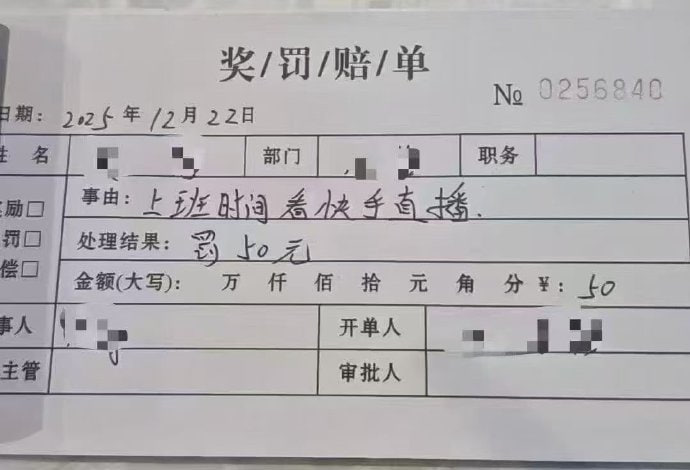 奖/罚/赔/单
№ 0256840
日期: 2025年12月22日
姓 名 部门 职务
奖励□ 事由: 上班时间看快手直播.
罚□ 处理结果: 罚50元
偿□ 金额(大写): 万 仟 佰 拾 元 角 分 ¥: 50
事人 开单人
主管 审批人